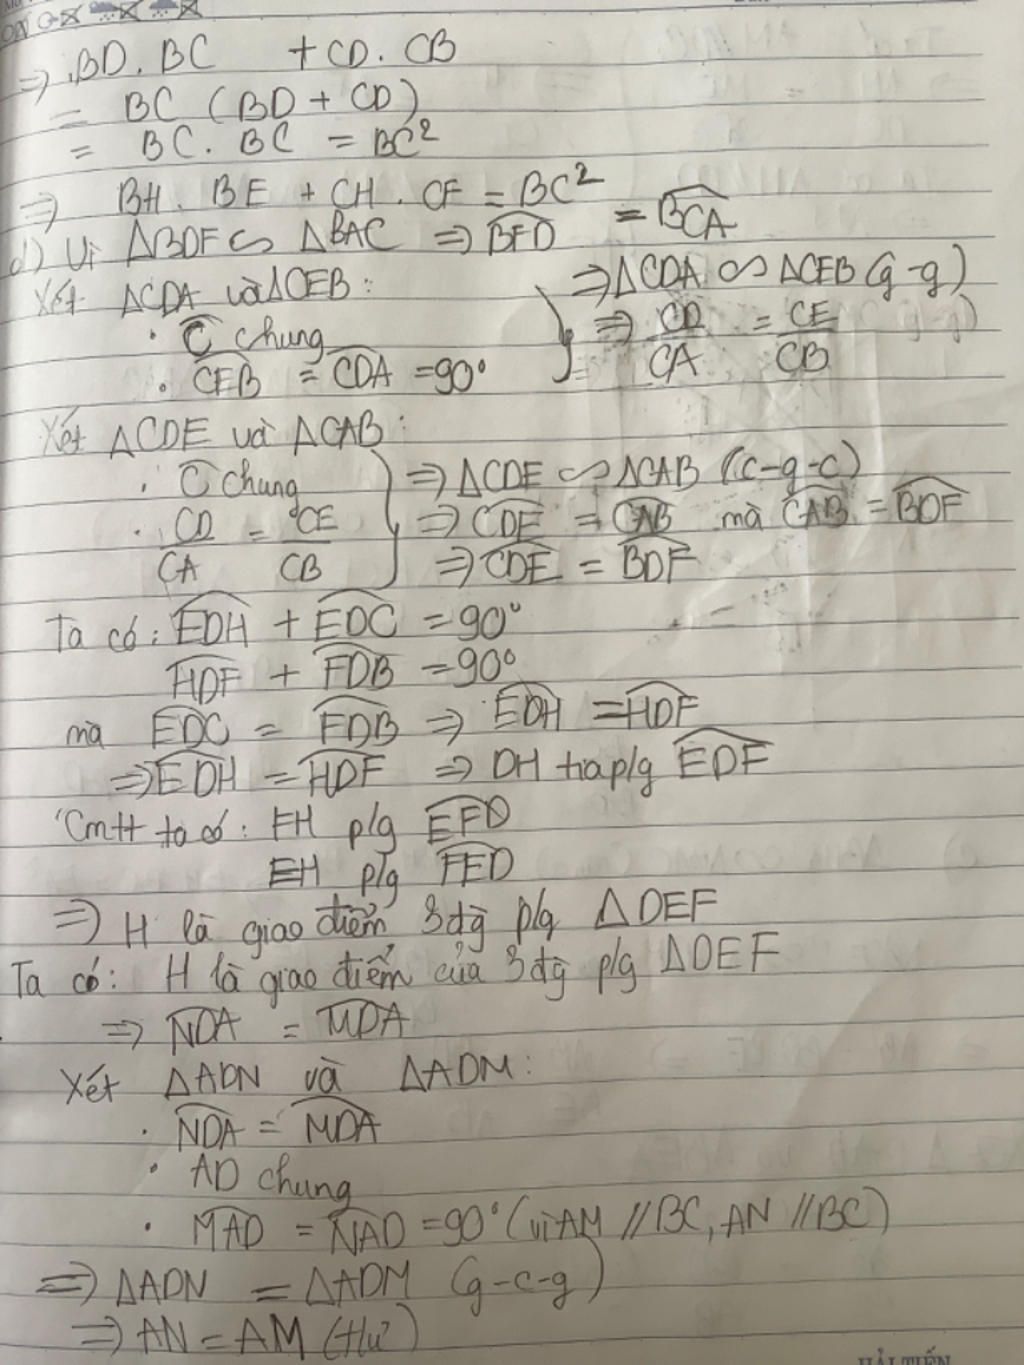 ⇒ BD. BC + CD. CB
= BC (BD + CD)
= BC. BC = BC²
⇒ BH. BE + CH. CF = BC²
d) Vì ΔBDF ∽ ΔBAC ⇒ \widehat{BFD} = \widehat{BCA}
Xét ΔCDA và ΔCEB: ⇒ ΔCDA ∽ ΔCEB (g-g)
. \widehat{C} chung ⇒ CD/CA = CE/CB
. \widehat{CEB} = \widehat{CDA} = 90°
Xét ΔCDE và ΔCAB:
. \widehat{C} chung ⇒ ΔCDE ∽ ΔCAB (c-g-c)
. CD/CA = CE/CB ⇒ \widehat{CDE} = \widehat{CAB} mà \widehat{CAB} = \widehat{BDF}
⇒ \widehat{CDE} = \widehat{BDF}
Ta có: \widehat{EDH} + \widehat{EDC} = 90°
\widehat{HDF} + \widehat{FDB} = 90°
mà \widehat{EDC} = \widehat{FDB} ⇒ \widehat{EDH} = \widehat{HDF}
⇒ \widehat{EDH} = \widehat{HDF} ⇒ DH tia p/g \widehat{EDF}
Cmtt ta có: FH p/g \widehat{EFD}
EH p/g \widehat{FED}
⇒ H là giao điểm 3 đg p/g ΔDEF
Ta có: H là giao điểm của 3 đg p/g ΔDEF
⇒ \widehat{NDA} = \widehat{MDA}
Xét ΔADN và ΔADM:
. \widehat{NDA} = \widehat{MDA}
. AD chung
. \widehat{MAD} = \widehat{NAD} = 90° (vì AM // BC, AN // BC)
⇒ ΔADN = ΔADM (g-c-g)
⇒ AN = AM (tư)
HẢI TIẾN